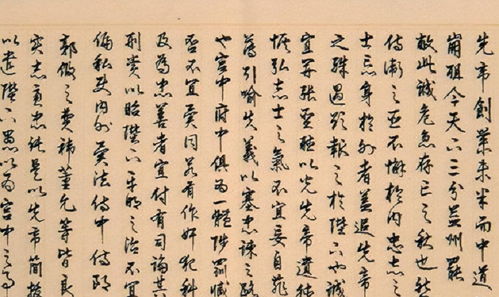 先帝創業未半而中道
崩殂今天下三分益州罷
敝此誠危急存亡之秋也然
侍衛之臣不懈於內忠志之
士忘身於外者蓋追先帝
之殊遇欲報之於陛下也誠
宜開張聖聽以光先帝遺德
恢弘志士之氣不宜妄自菲
薄引喻失義以塞忠諫之路
也宮中府中俱為一體陟罰臧
否不宜異同若有作奸犯科
及為忠善者宜付有司論其
刑賞以昭陛下平明之治不宜
偏私使內外異法侍中侍郎
郭攸之費禕董允等皆良
實志慮忠純是以先帝簡拔
以遺陛下愚以為宮中之事